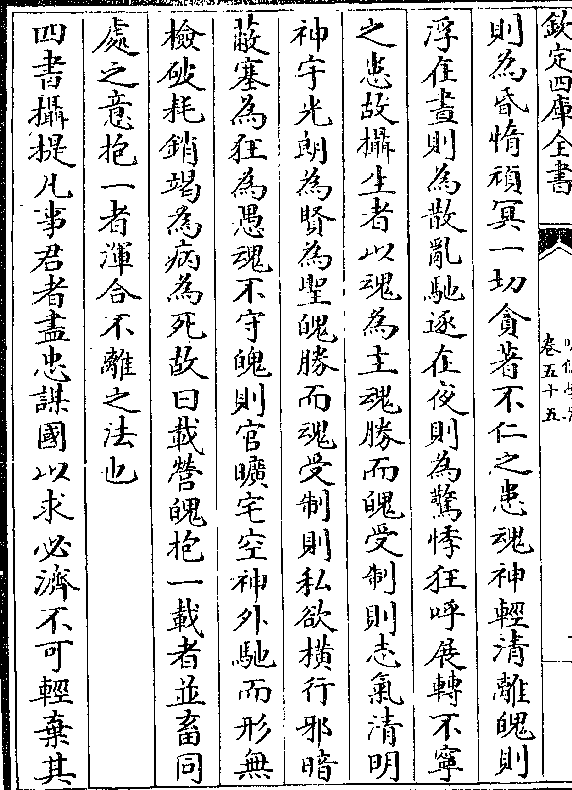 欽定四庫全書
卷五十五
則為昏惰頑冥一切貪著不仁之患魂神輕清離魄則
浮在晝則為散亂馳逐在夜則為驚悸狂呼展轉不寧
之患故攝生者以魂為主魂勝而魄受制則志氣清明
神宇光朗為賢為聖魄勝而魂受制則私欲橫行邪暗
蔽塞為狂為愚魂不守魄則官曠宅空神外馳而形無
檢破耗銷竭為病為死故曰載營魄抱一載者並畜同
處之意抱一者渾合不離之法也
四書攝提凡事君者盡忠謀國以求必濟不可輕棄其